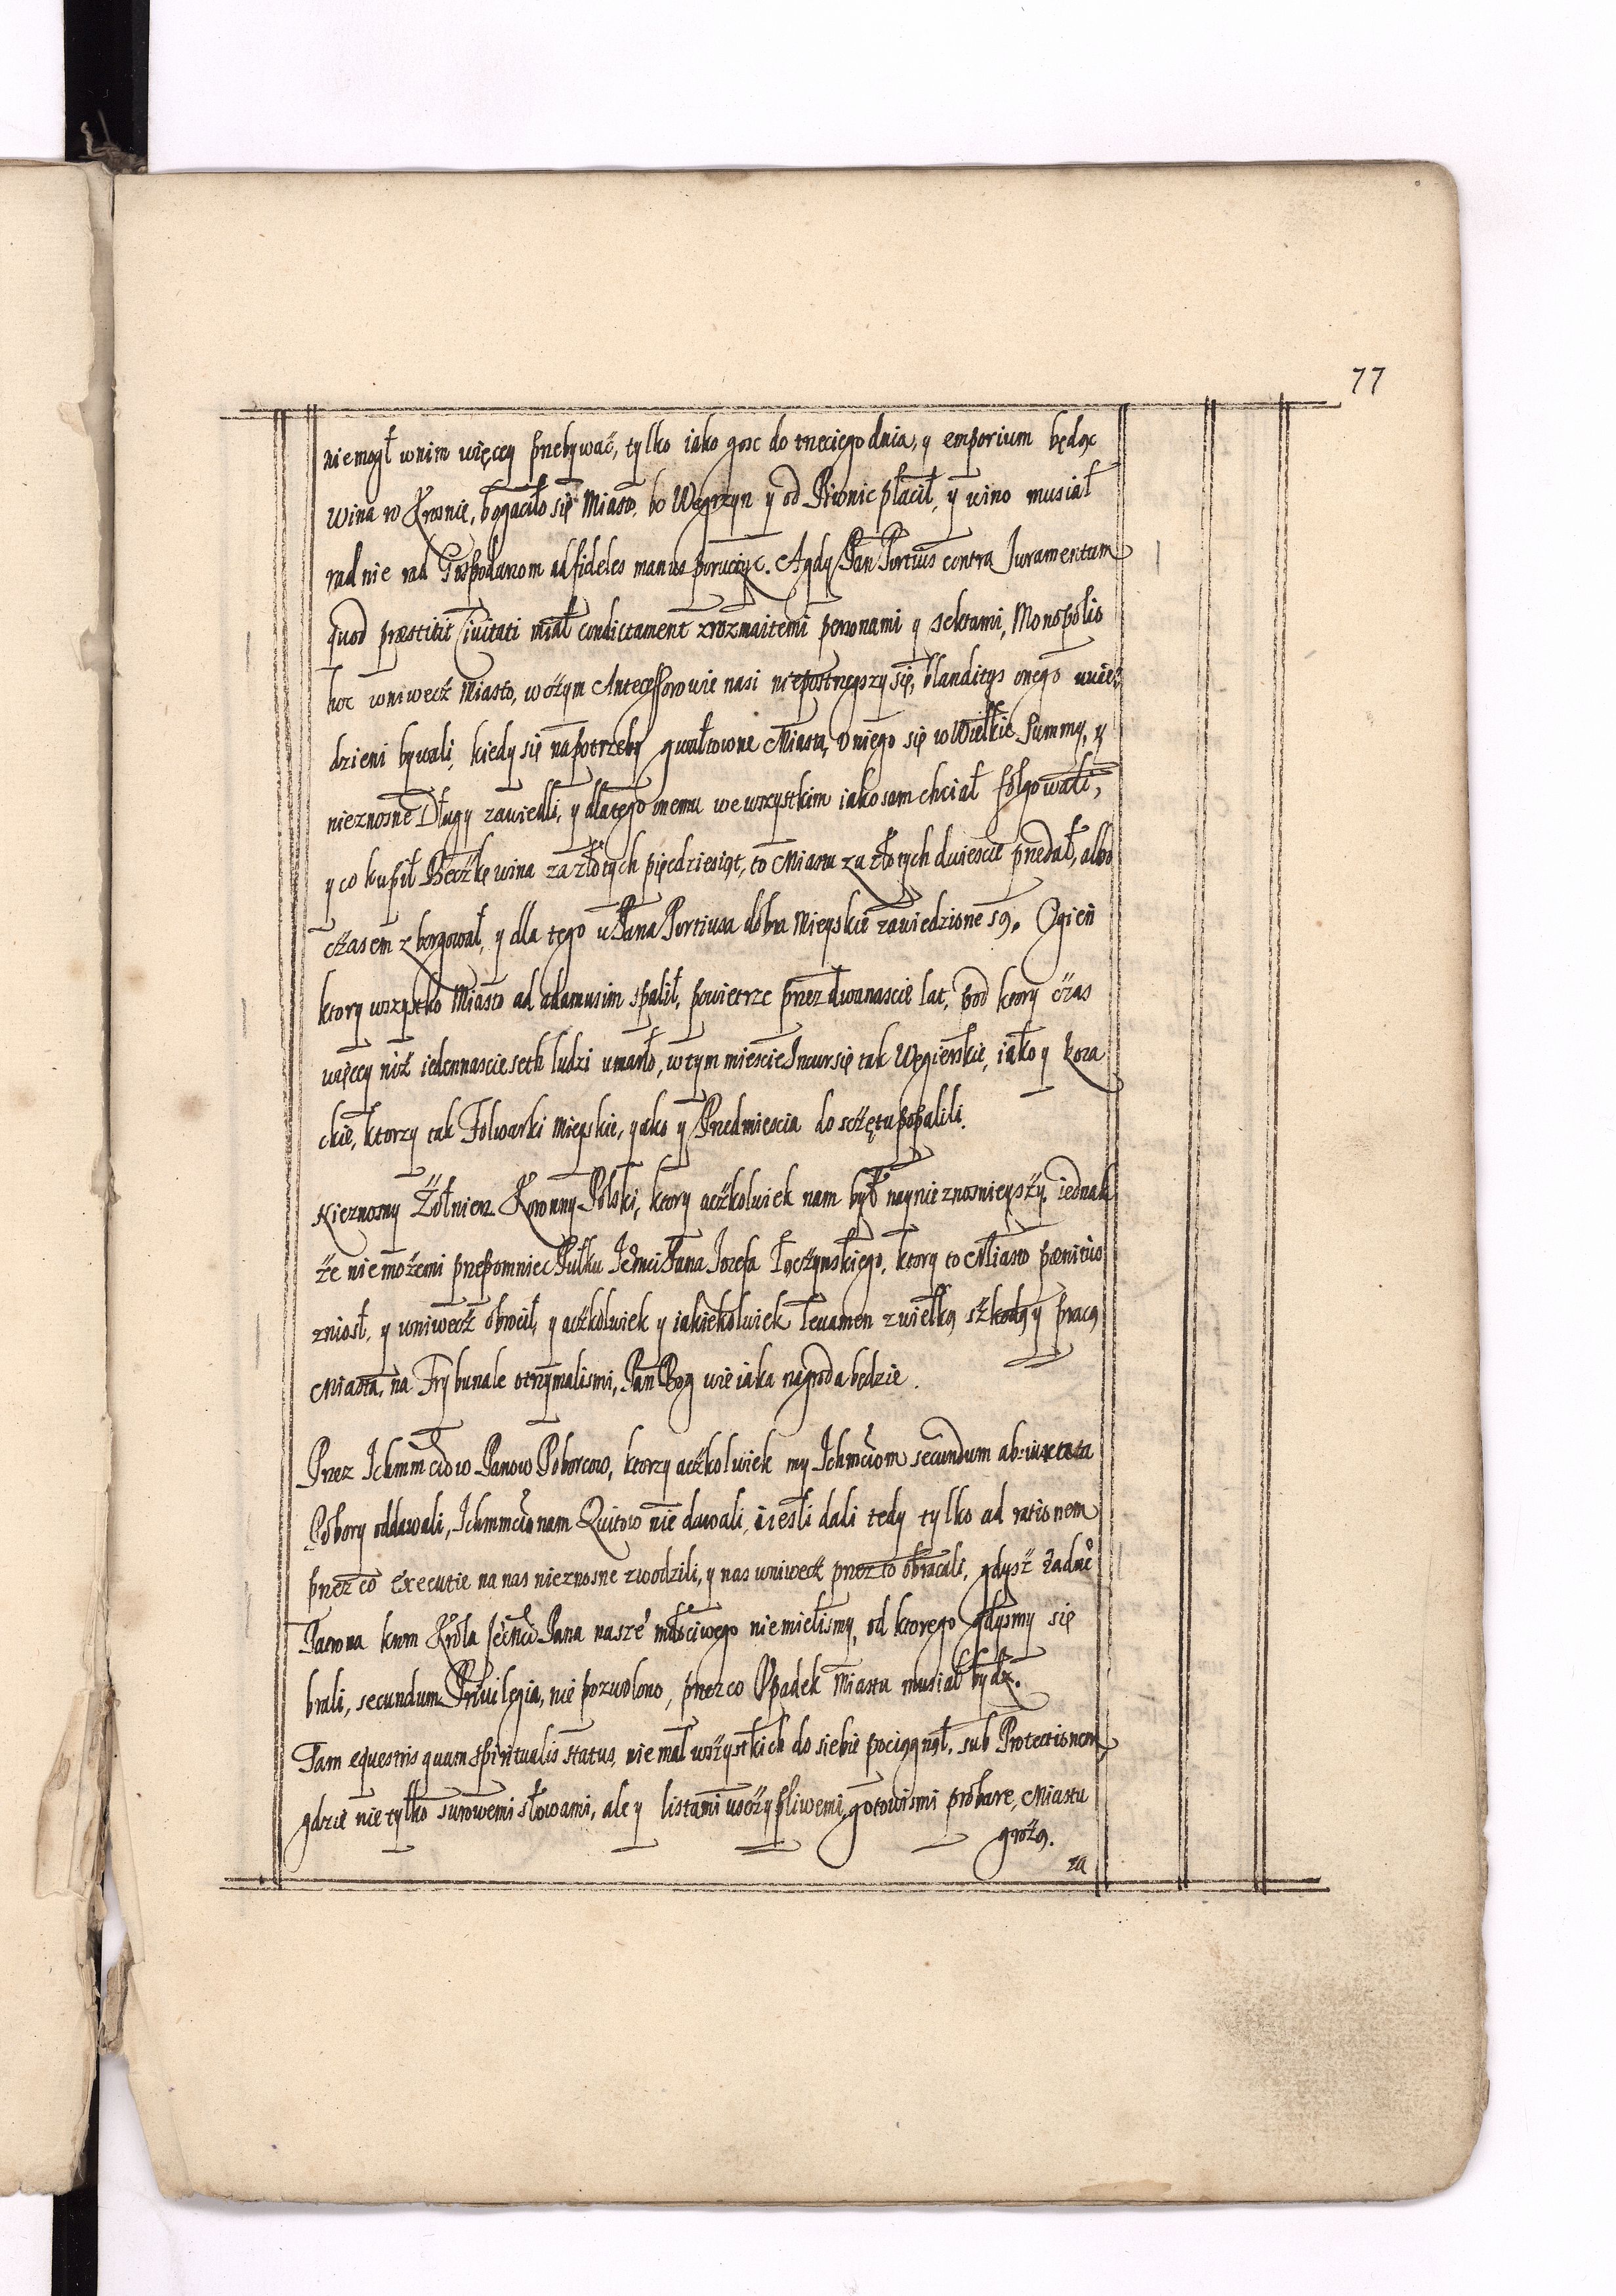 77
nie mogł wnim więcey przebywać, tylko iako gosc do trzeciego dnia, y emporium będąc
wina w Krosnie, bogaciło się Miasto, bo Węgrzyn y od Piwnic płacił, y wino musiał
rad nie rad Gospodarzom ad fideles manus poruczyć. A gdy Pan Portius contra Juramentum
quod præstitit Civitati miał condictament z rozmaitemi personami y sektami, Monopolio
hoc wniwecż Miasto, w cżym Antecessorowie nasi niepostrzegszy się, blanditys onego uwie=
dzieni bywali, kiedy się na potrzeby gwałtowne Miasta, v niego się w Wielkie Summy, y
nieznosne Długi zawiedli, y dlatego onemu we wszystkim iako sam chciał folgowali,
y co kupił Becżkę wina za złotych pięcdziesiąt, to Miastu za złotych dwiescie przedał, albo
cżasem zborgował, y dla tego u Pana Portiusa dobra Mieyskie zawiedzione są. Ogień
ktory wszystko Miasto ad adamusim spalił, powietrze przez dwanascie lat, pod ktory cżas
więcey niż iedennascie seth ludzi umarło, w tym miescie Incursię tak Węgierskie, iako y koza
ckie, ktorzy tak Folwarki Mieyskie, yako y Przedmiescia do scżętu popalili.
Nieznosny Żołnierz Koronny Polski, ktory acżkolwiek nam był naynieznosnieyszy, iednak
że nie możemi przepomniec Pułku Jemci Pana Jozefa Łącżynskiego, ktory to Miasto pænitus
zniosł, y wniwecż obrocił, y acżkolwiek y iakiekolwiek levamen z wielką szkodą y pracą
Miasta, na Trybunale otrzymalismi, Pan Bog wie iaka nagroda będzie.
Przez Ichmmciow Panow Poborcow, ktorzy acżkolwiek my Ichmciom secundum abiurata
Pobory oddawali, Ichmmcio nam Quitow nie dawali, iiesli dali tedy tylko ad rationem
przez co Executie na nas nieznosne zwodzili, y nas wniwecż przez to obracali, gdysz żadne
Patrona krom Krola Jeomci Pana nasze miłosciwego niemielismy, od ktorego gdysmy się
brali, secundum Privilegia, nie pozwolono, przez co Vpadek Miastu musiał bydz.
Tam equestris quam spiritualis status, nie mal wszystkich do siebie pociągnął, sub Protectionem,
gdzie nie tylko surowemi słowami, ale y listami uscżypliwemi, gotowismi probare, Miastu
grożą.
za